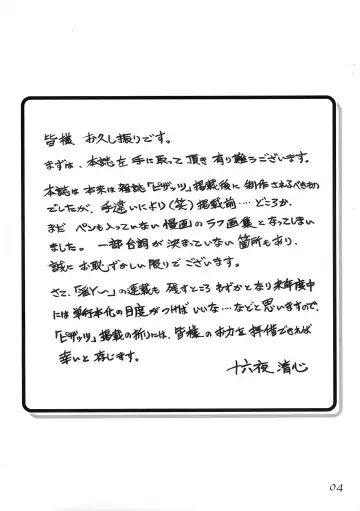 皆様 お久し振りです。
まずは、本誌を手に取って頂き有り難うございます。
本誌は本来は雑誌「ピザッツ」掲載後に制作されるべきもの
でしたが、手違いにより(笑)掲載前…どころか、
まだペンも入っていない漫画のラフ画集となってしまい
ました。一部台詞が決まっていない箇所もあり、
誠にお恥ずかしい限りでございます。
さて、「淫Y〜」の連載も残すところわずかとなり来年度中
には単行本化の目度がつけばいいな…などと思いますので、
「ピザッツ」掲載の折りには、皆様のお力を拝借できれば
幸いと存じます。
十六夜 清心
04